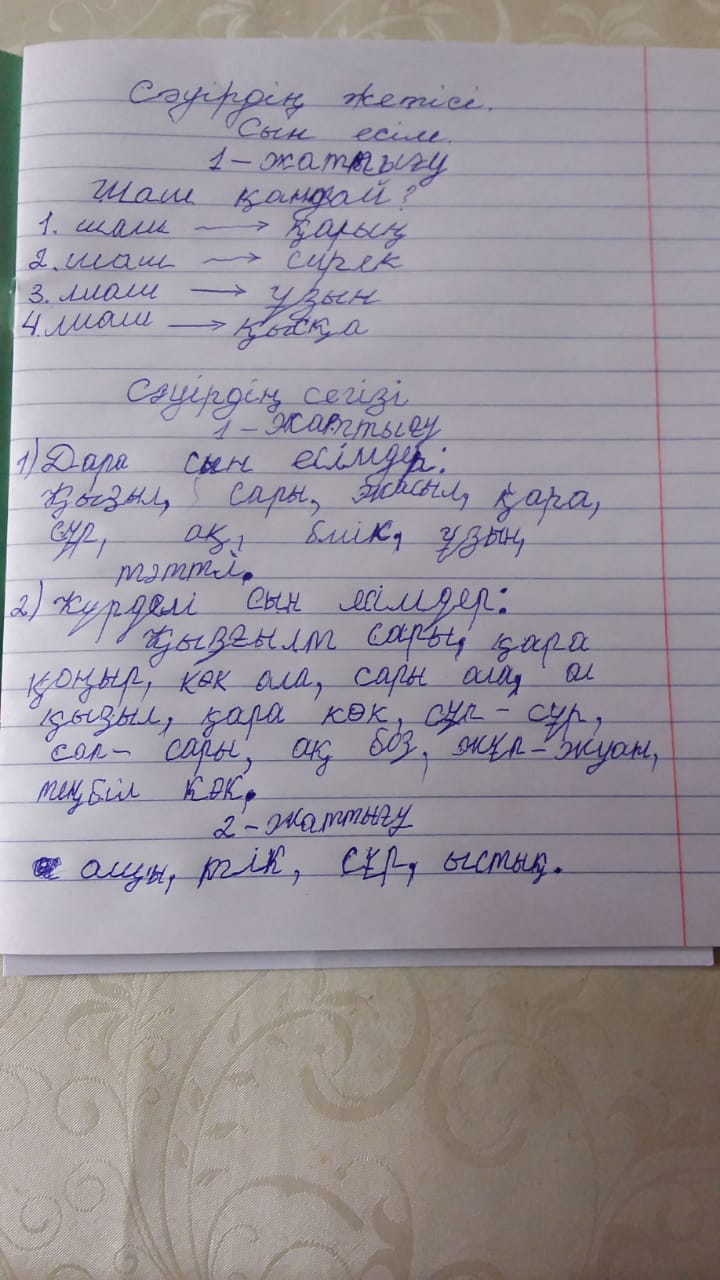 Сәуірдің жетісі.
Сын есім.
1-жаттығу
Шаш қандай?
1. шаш → қарың
2. шаш → сирек
3. шаш → ұзын
4. шаш → қысқа
Сәуірдің сегізі
1-жаттығу
1) Дара сын есімдер:
Қызыл, сары, жасыл, қара,
сұр, ақ, биік, ұзын,
тәтті.
2) Күрделі сын есімдер:
Қызғылт сары, қара
қоңыр, көк ала, сары ала, ал
қызыл, қара көк, сұп-сұр,
сап-сары, ақ боз, жұп-жуан,
теңбіл көк.
2-жаттығу
ащы, тік, сұр, ыстық.